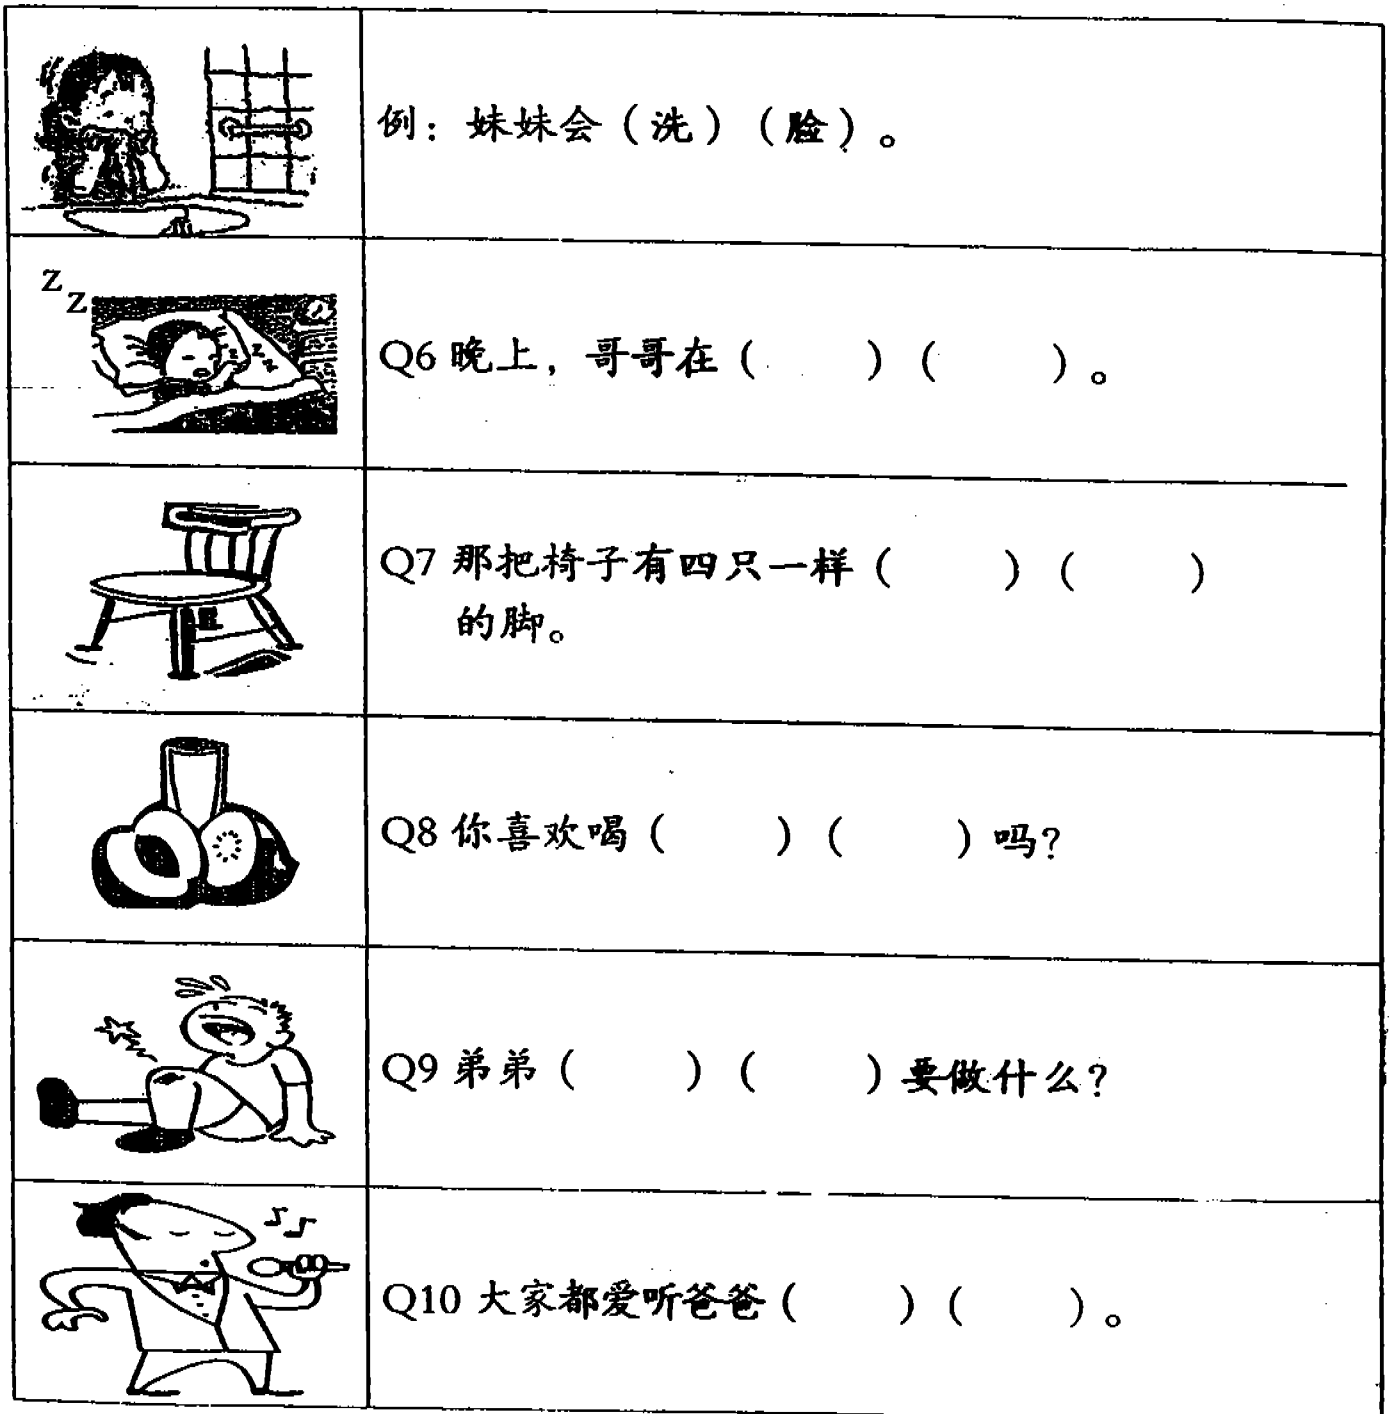 例：妹妹会（洗）（脸）。
Z
Z
Q6 晚上，哥哥在（　　）（　　）。
Q7 那把椅子有四只一样（　　）（　　）
的脚。
Q8 你喜欢喝（　　）（　　）吗？
Q9 弟弟（　　）（　　）要做什么？
Q10 大家都爱听爸爸（　　）（　　）。